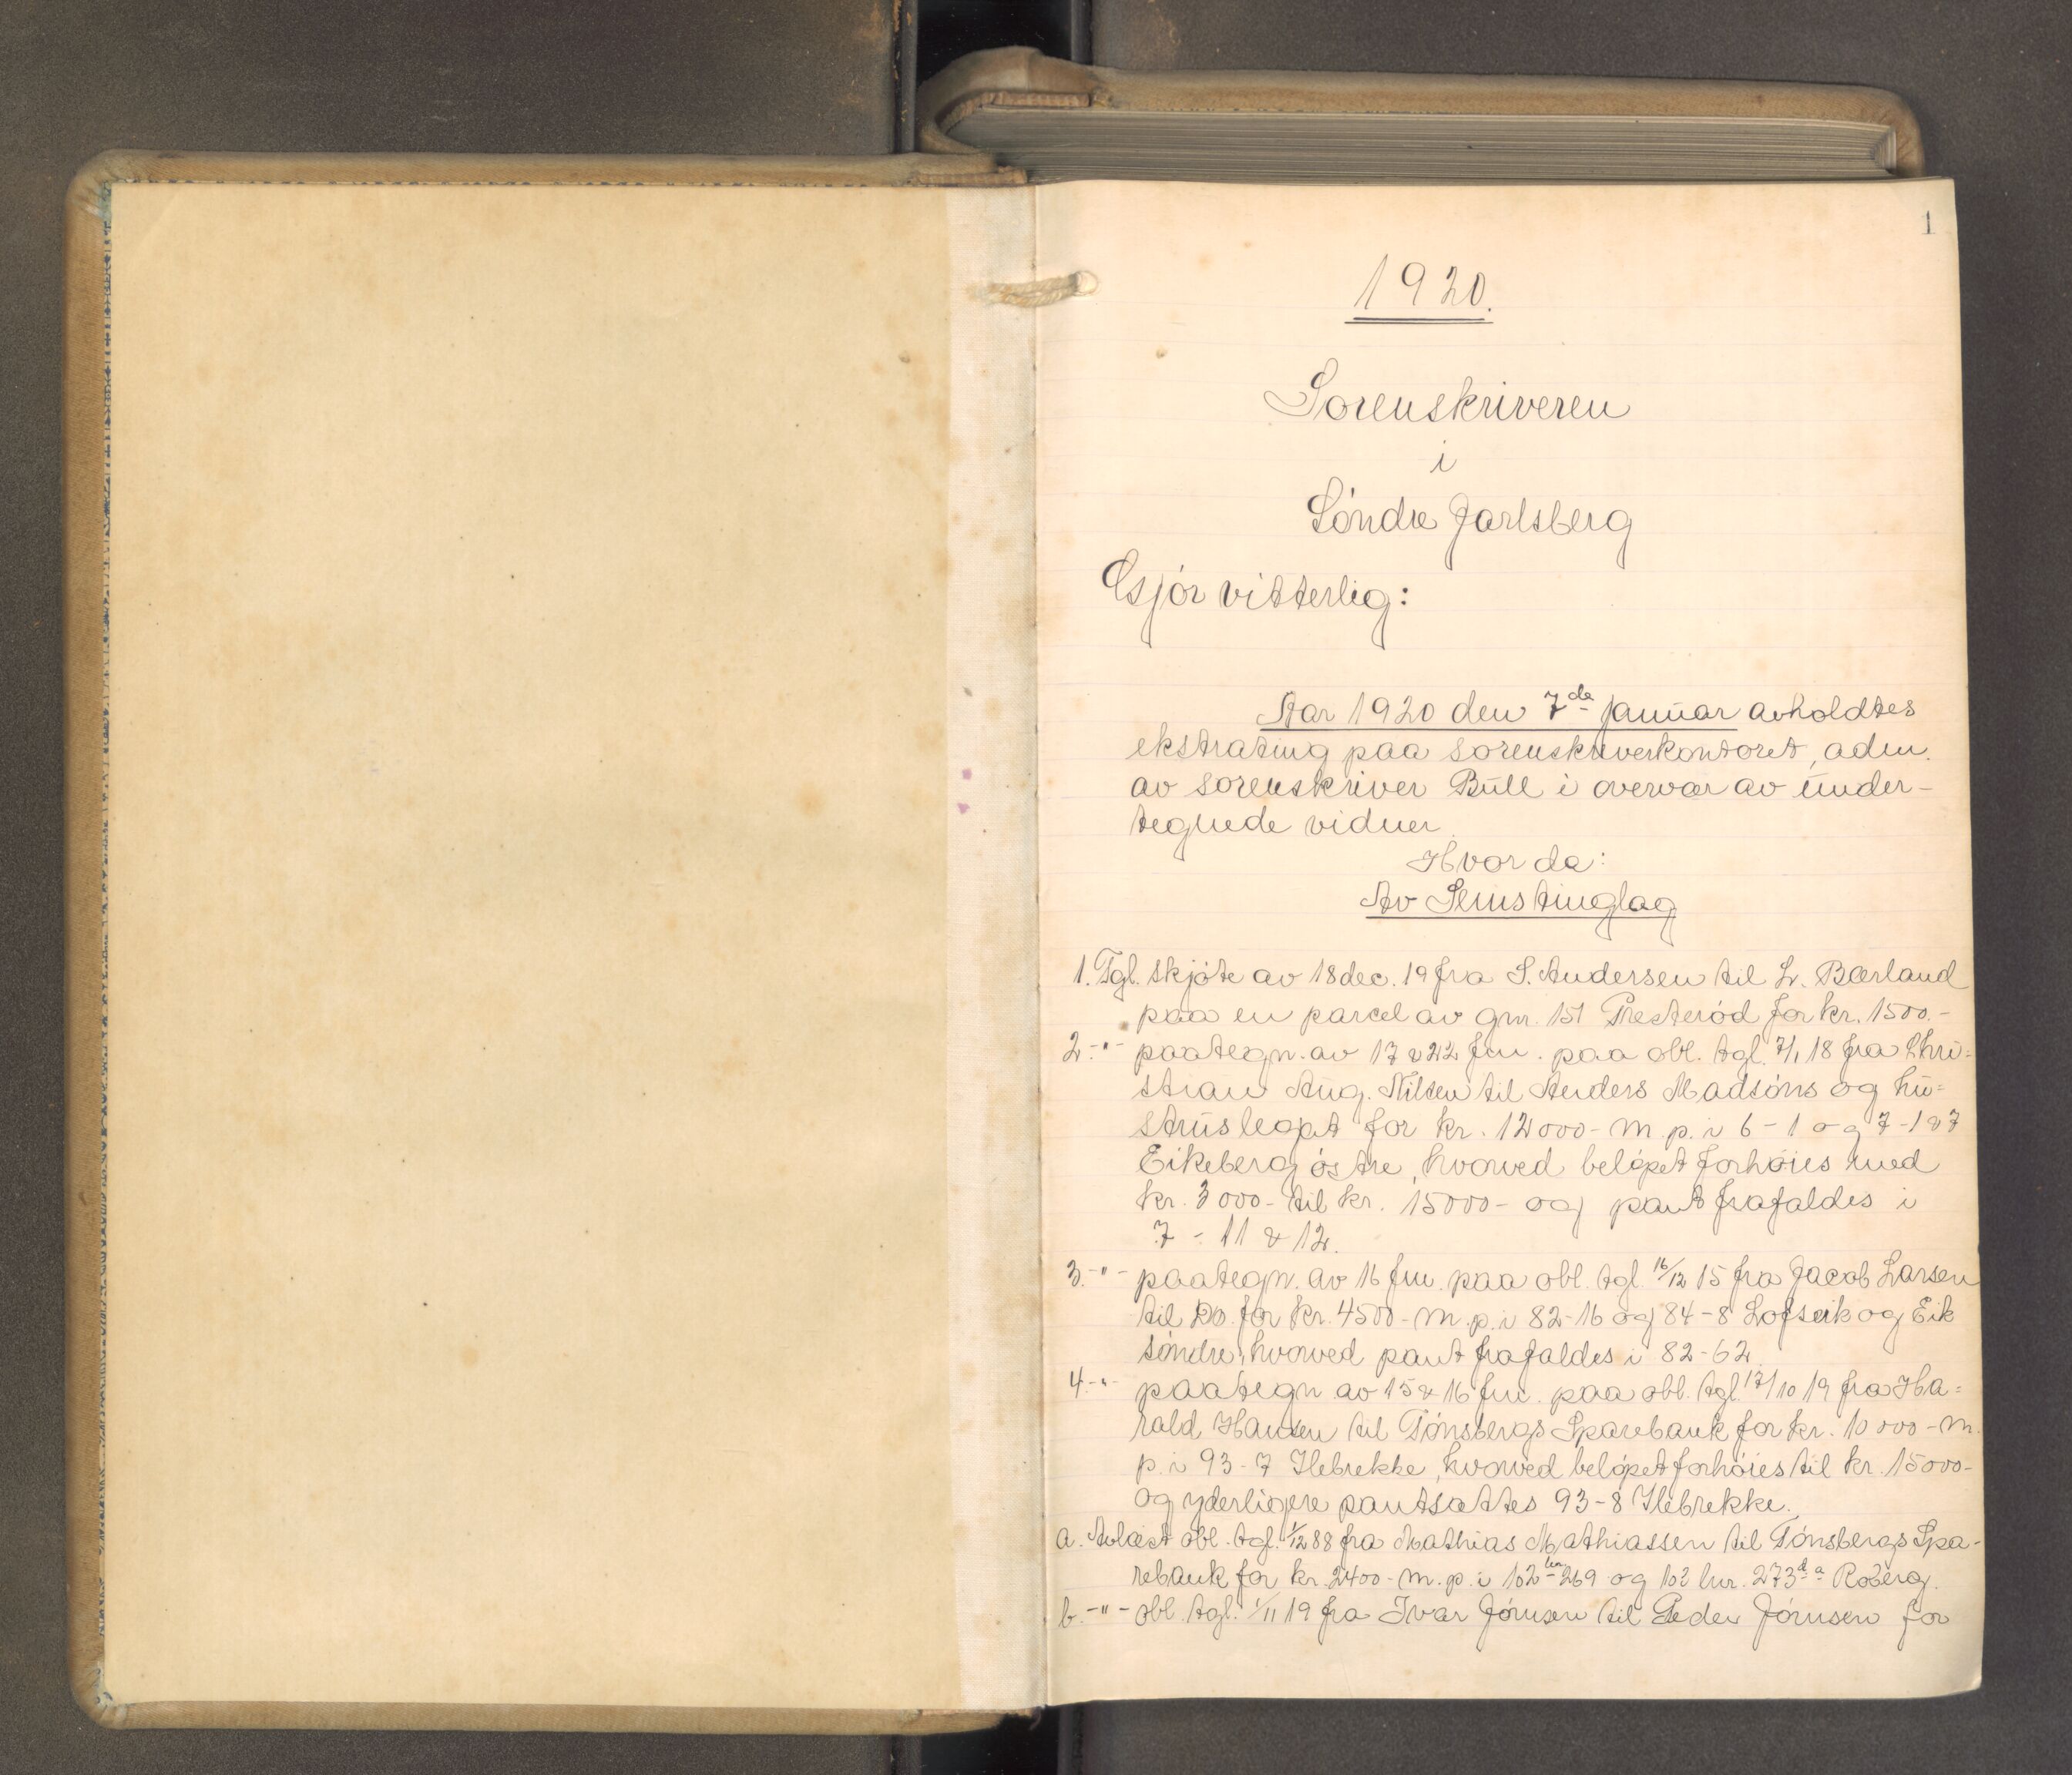 1
1920.
Sorenskriveren
i
Söndre Jarlsberg
Gjör vitterlig:
Aar 1920 den 7de januar avholdtes
ekstrating paa sorenskriverkontoret, adm.
av sorenskriver Bull i overvær av under-
tegnede vidner.
Hvor da:
Av Sems tinglag
1. Tgl. skjöte av 18 dec. 19 fra S. Andersen til L. Bærland
paa en parcel av gnr. 151 Presteröd for kr. 1500.-
2.-"- paategn. av 17 & 22 f.m. paa obl. tgl. 7/1 18 fra Chri=
stian Aug. Nilsen til Anders Madsöns og hu=
strus legat for kr. 12000- m. p. i 6-1 og 7-1 & 7
Eikeberg östre, hvorved belöpet forhöies med
kr. 3000- til kr. 15000- og pant frafaldes i
7 - 11 & 12.
3.-"- paategn. av 16 f.m. paa obl. tgl. 16/12 15 fra Jacob Larsen
til Do for kr. 4500- m. p. i 82-16 og 84-8 Lofseik og Eik
söndre, hvorved pant frafaldes i 82-62
4.-"- paategn av 15 & 16 f.m. paa obl. tgl. 17/10 19 fra Ha=
rald Hansen til Tönsbergs Sparebank for kr. 10000- m.
p. i 93-7 Ilebrekke, hvorved belöpet forhöies til kr. 15000-
og yderligere pantsættes 93-8 Ilebrekke.
a. Avlæst obl. tgl. 1/12 88 fra Mathias Mathiassen til Tönsbergs Spa-
rebank for kr. 2400- m. p. i 102 lnr 269 og 102 lnr. 273 d a Roberg.
b.-"- obl. tgl. 1/11 19 fra Ivar Jörnsen til Peder Jörnsen for